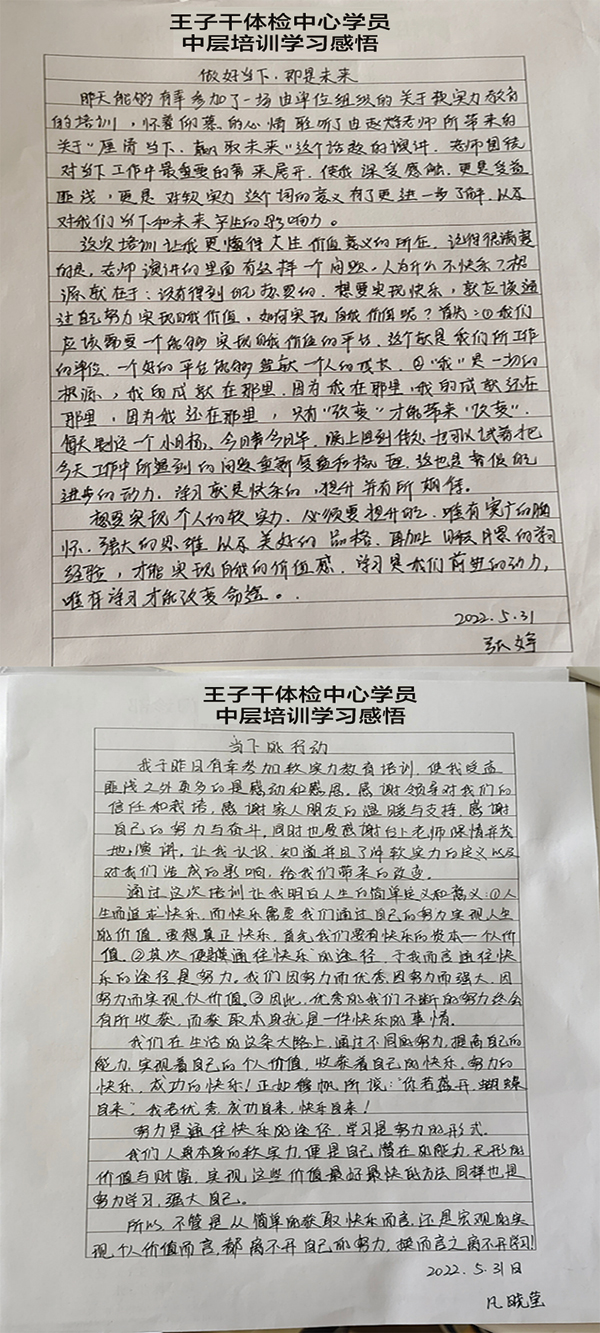 王子干体检中心学员
中层培训学习感悟
做好当下，那是未来
昨天能够有幸参加了一场由单位组织的关于软实力教育
的培训，怀着仰慕的心情聆听了由赵老师所带来的
关于“厘清当下，赢取未来”这个话题的演讲，老师围绕
对当下工作中最重要的事来展开，使我深受感触，更是受益
匪浅，更是对软实力这个词的意义有了更进一步了解，以及
对我们当下和未来产生的影响力。
这次培训让我更懂得人生价值意义的所在，记得很清楚
的是，老师演讲的里面有这样一个问题，人为什么不快乐？根
源就在于：没有得到自己想要的，想要实现快乐，就应该通
过自己努力实现自我价值，如何实现自我价值呢？首先：①我们
应该需要一个能够实现自我价值的平台，这个就是我们所工作
的单位，一个好的平台能够贡献一个人的成长，②“我”是一切的
根源，我的成就在那里，因为我在那里，我的成就还在
那里，因为我还在那里，只有“改变”才能带来“改变”，
每天制定一个小目标，今日事今日毕，晚上回到住处也可以试着把
今天工作中所遇到的问题重新复盘和梳理，这也是督促自己
进步的动力，学习就是快乐的，提升并有所期待。
想要实现个人的软实力，必须要提升自己，唯有宽广的胸
怀，强大的思维以及美好的品格，再加上日积月累的学习
经验，才能实现自我的价值感，学习是我们前进的动力，
唯有学习才能改变命运。
2022.5.31
张婷
王子干体检中心学员
中层培训学习感悟
当下既行动
我于昨日有幸参加软实力教育培训，使我受益
匪浅之外更多的是感动和感恩。感谢领导对我们的
信任和栽培，感谢家人朋友的温暖与支持，感谢
自己的努力与奋斗，同时也感谢台上老师倾情并茂
地演讲。让我认识，知道并且了解软实力的定义以及
对我们造成的影响，给我们带来的改变。
通过这次培训让我明白人生的简单定义和意义：①人
生而追求快乐，而快乐需要我们通过自己的努力实现人生
的价值。要想真正快乐，首先我们要有快乐的资本一个人价
值。②其次便是“通往快乐”的途径，于我而言通往快
乐的途径是努力。我们因努力而优秀，因努力而强大，因
努力而实现个人价值。③因此，优秀的我们不断的努力终会
有所收获，而获取本身就是一件快乐的事情。
我们在生活的这条大路上，通过不同的努力，提高自己的
能力，实现着自己的个人价值，收获着自己的快乐，努力的
快乐，成功的快乐！正如穆帆所说：“你若盛开，蝴蝶
自来”，我若优秀，成功自来，快乐自来！
努力是通往快乐的途径，学习是努力的形式。
我们人类本身的软实力，便是自己潜在的能力，无形的
价值与财富，实现这些价值最好最快的方法同样也是
努力学习，强大自己。
所以，不管是从简单的获取快乐而言，还是宏观的实
现个人价值而言，都离不开自己的努力，换而言之离不开学习！
2022.5.31日
凡晓莹